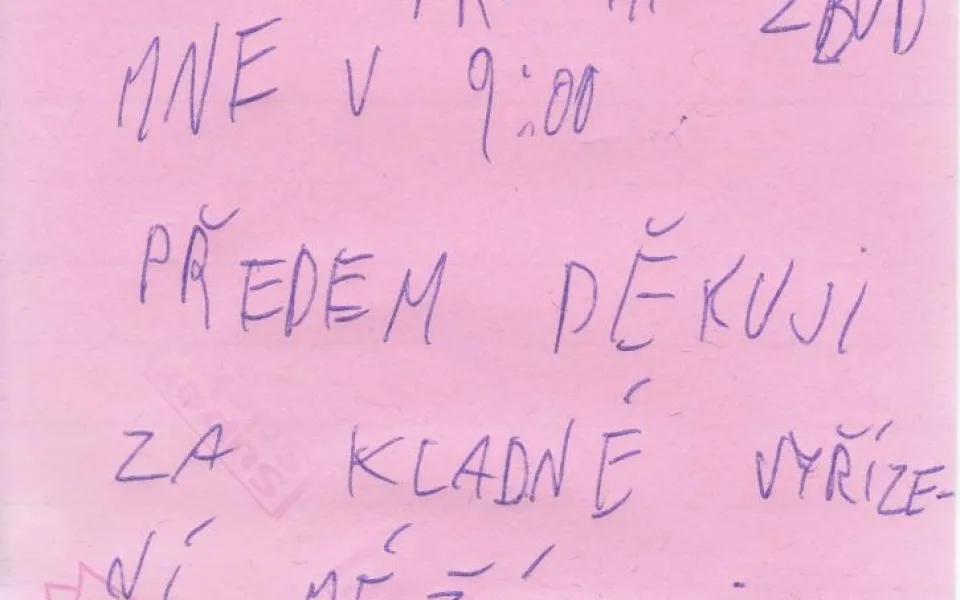 ZBUD
MNE V 9:00
PŘEDEM DĚKUJI
ZA KLADNÉ VYŘÍZE-
NÍ